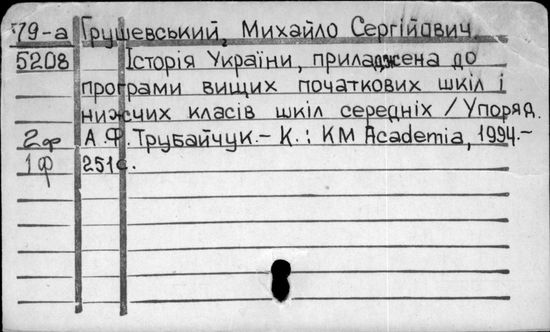 79-а Грушевський, Михайло Сергійович.
5208 Історія України, приладжена до
програми вищих початкових шкіл і
нижчих класів шкіл середніх / Упоряд.
2ф А.Ф. Трубайчук.– К.: КМ Academia, 1994.–
1ф 251с.